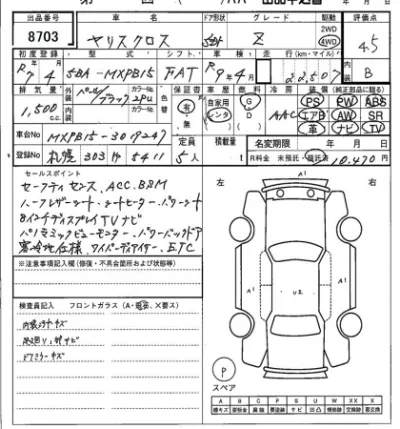 出品番号 車名 ドア形状 グレード 駆動 評価点
8703 ヤリスクロス 5D Z 2WD 4WD 4.5
初度登録 型式 シフト 車検 走行(km・マイル)
R7年4月 5BA-MXPB15 FAT R9年4月 22,507 B
排気量 外装 カラーNo. 色替 保証書 車歴 燃料 冷房 装備(純正部品に限る)
1,500cc パール/ブラック 2PU 有・無 自家用 レンタ G D AAC PS PW ABS
内装 カラーNo. エアB AW SR
革 ナビ TV
車台No MXPB15-3019247 定員 積載量 名変期限 年 月 日
登録No 札幌 303 5411 5人 t R料金 未預託・預託済 10,470円
セールスポイント
セーフティセンス、ACC、BSM
ハーフレザーシート、シートヒーター、パワーシート
8インチディスプレイTVナビ
パノラミックビューモニター、パワーバックドア
寒冷地仕様、ワイパーデアイサー、ETC
※注意事項記入欄(修復・不具合箇所および状態等)
検査員記入 フロントガラス(A・飛石、X要ス)
内装 キズ
ドアミラーキズ
左 右
A1
A1
U2
A1
A1
P
スペア
A B C P S U W X XX
線キズ 要板金 腐蝕 要塗装 サビ 凹凸 補修跡 要交換 交換跡